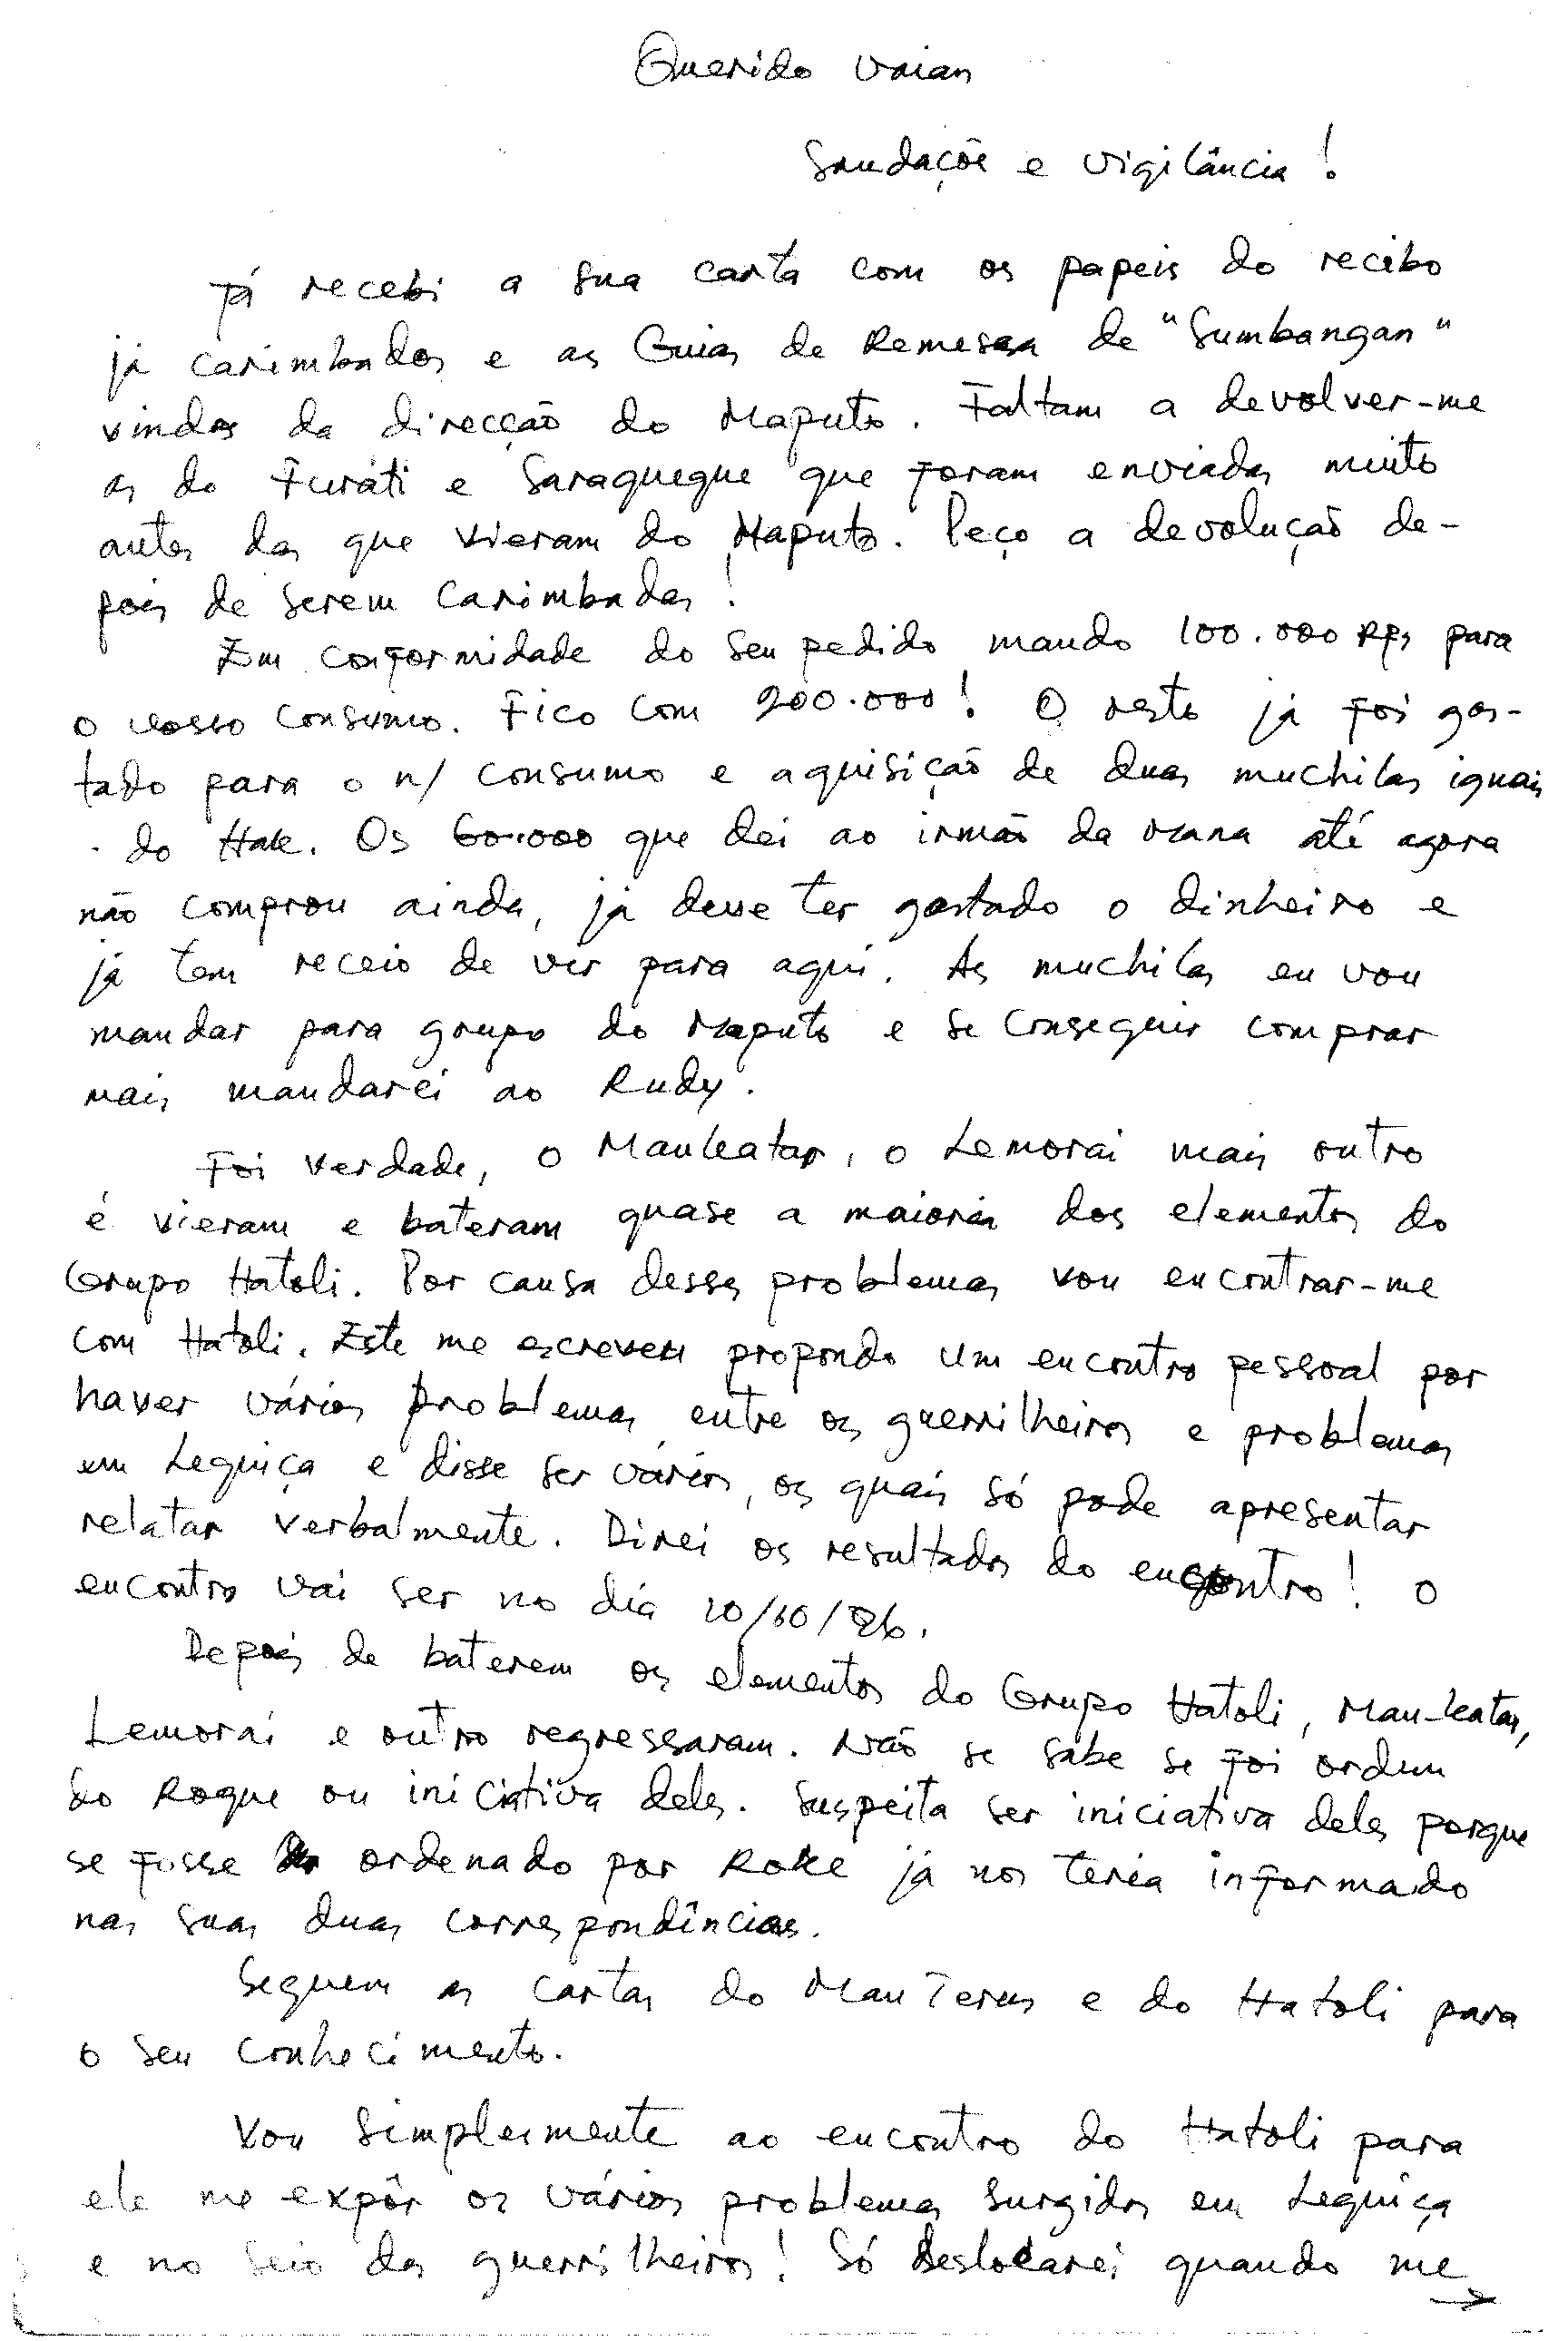 Querido Vaian
Saudações e vigilância!
Já recebi a sua carta com os papeis do recibo
já carimbados e as Guias de Remessa de "Sumbangan"
vindas da direcção do Maputo. Faltam a devolver-me
as do Furati e Saraquegue que foram enviadas muito
antes das que vieram do Maputo. Peço a devolução de-
pois de serem carimbadas!
Em conformidade do seu pedido mando 100.000 Rps para
o vosso consumo. Fico com 200.000! O resto já foi gas-
tado para o n/ consumo e aquisição de duas muchilas iguais
do Hak. Os 60.000 que dei ao irmão da Mana até agora
não comprou ainda, já deve ter gastado o dinheiro e
já tem receio de vir para aqui. As muchilas eu vou
mandar para grupo do Maputo e se conseguir comprar
mais mandarei ao Rudy.
Foi verdade, o Mauleatar, o Lemorai mais outro
é vieram e bateram quase a maioria dos elementos do
Grupo Hatoli. Por causa desses problemas vou encontrar-me
com Hatoli. Este me escreveu propondo um encontro pessoal por
haver vários problemas entre os guerrilheiros e problemas
em Lequiça e disse ser vários, os quais só pode apresentar
relatar verbalmente. Direi os resultados do encontro! O
encontro vai ser no dia 10/10/96.
Depois de baterem os elementos do Grupo Hatoli, Mau-leatar,
Lemorai e outro regressaram. Não se sabe se foi ordem
do Roque ou iniciativa deles. Suspeita ser iniciativa deles porque
se fosse ordenado por Roke já nos teria informado
nas suas duas correspondências.
Seguem as cartas do Mau Terus e do Hatoli para
o seu conhecimento.
Vou simplesmente ao encontro do Hatoli para
ele me expôr os vários problemas surgidos em Lequiça
e no seio dos guerrilheiros! Só deslocarei quando me